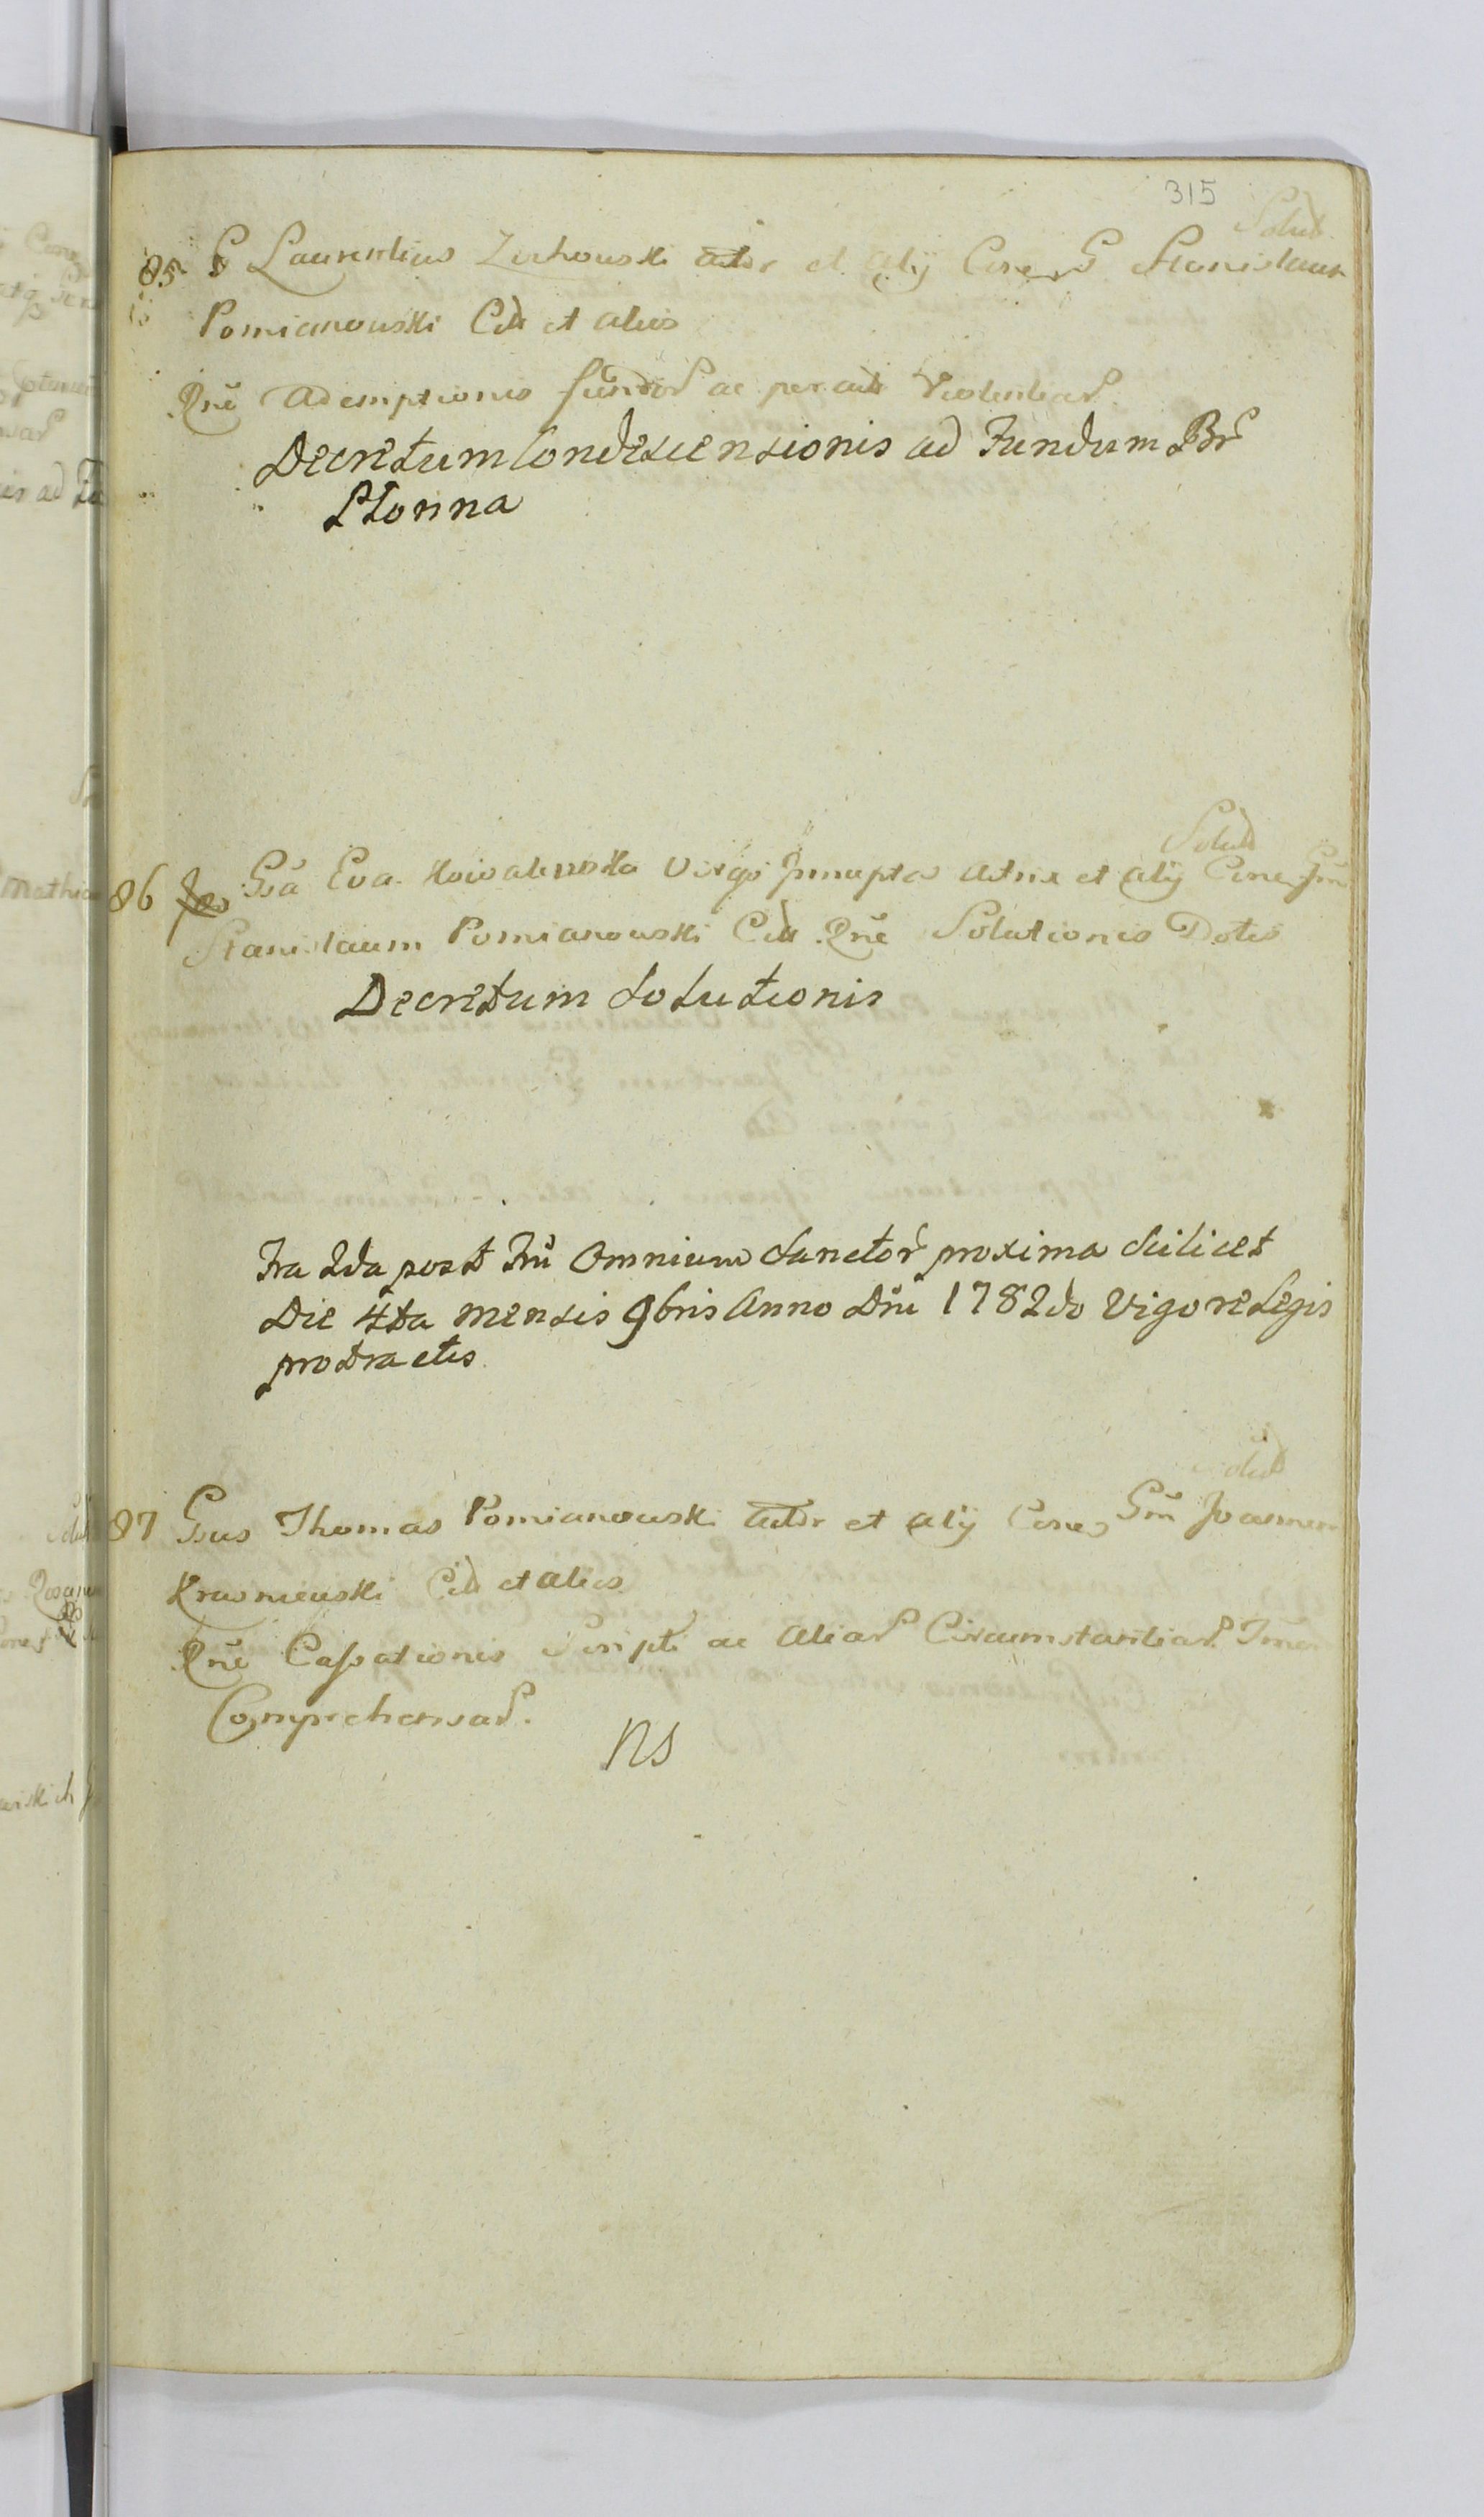 315
Solut
85 G Laurentius Zuchowski Actor et Alij Cone G Stanislaum
Pomianowski Citt et alios
Rñe Ademptionis fundor ac per acta Violentiar
Decretum Condescensionis ad Fundum Br
Płonna
Solut
86 Gsa Eva Kowalewska Virgo Innupta Actrix et Alij Cone Gm
Stanislaum Pomianowski Citt Rñe Solutionis Dotis
Decretum Solutionis
Fra 2da post Fm Omnium Sanctor proxima Scilicet
Die 4ta mensis 9bris Anno Dni 1782do Vigore Legis
protractis
Solut
87 Gsus Thomas Pomianowski Actor et Alij Cone Gm Joannem
Krasniewski Citt et alios
Rñe Cassationis Scripti ac Aliar Circumstantiar
Comprehensar.
ns